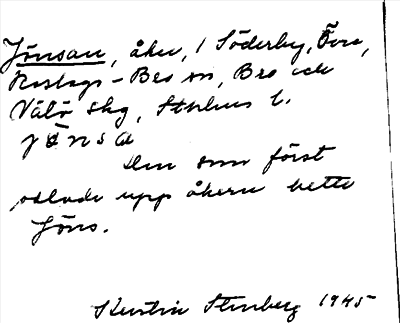 Jönsan, åker, i Söderby,
Roslags-Bro sn, Bro och
Vätö skg, Sthlms l.
jönsa
Den som först
odlade upp åkern hette
Jöns.
Kerstin Stenberg 1945